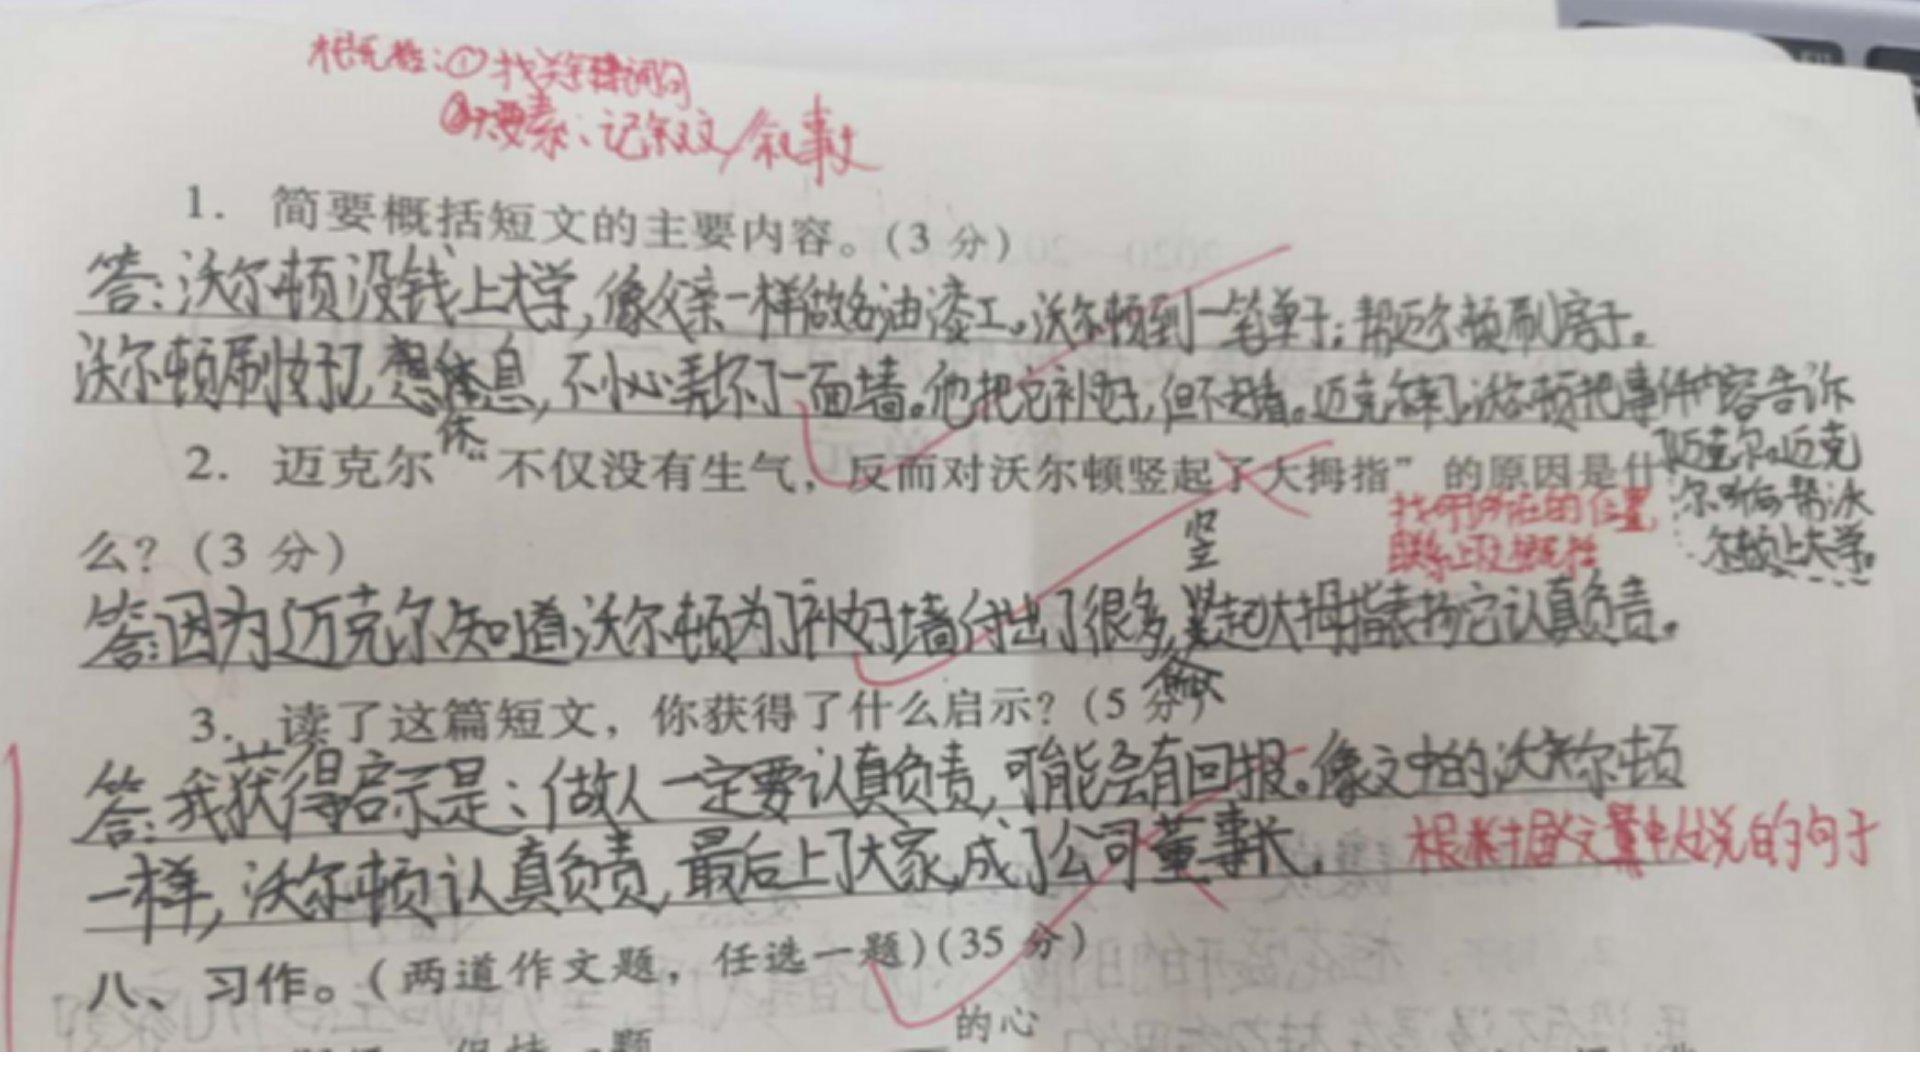 概括题：①找关键词句
②六要素：记叙文/叙事文
1. 简要概括短文的主要内容。（3 分）
答：沃尔顿没钱上大学，像父亲一样做油漆工。沃尔顿到一笔单子：帮迈尔顿刷房子。
沃尔顿刷好了，想休息，不小心弄坏了一面墙。他把它补好，但不好看。迈克尔来了，沃尔顿把事件内容告诉
了迈克尔。迈克
尔听后帮沃
尔顿上大学。
休
2. 迈克尔“不仅没有生气，反而对沃尔顿竖起了大拇指”的原因是什
么？（3 分）
找词所在的位置
联系上文
竖
答：因为迈克尔知道沃尔顿为了补好墙付出了很多，竖起大拇指表扬它认真负责。
3. 读了这篇短文，你获得了什么启示？（5 分）
获得
答：我获得启示是：做人一定要认真负责，可能会有回报。像文中的沃尔顿
一样，沃尔顿认真负责，最后上了大家，成了公司董事长。
根据文章中的句子
八、习作。（两道作文题，任选一题）（35 分）
的心